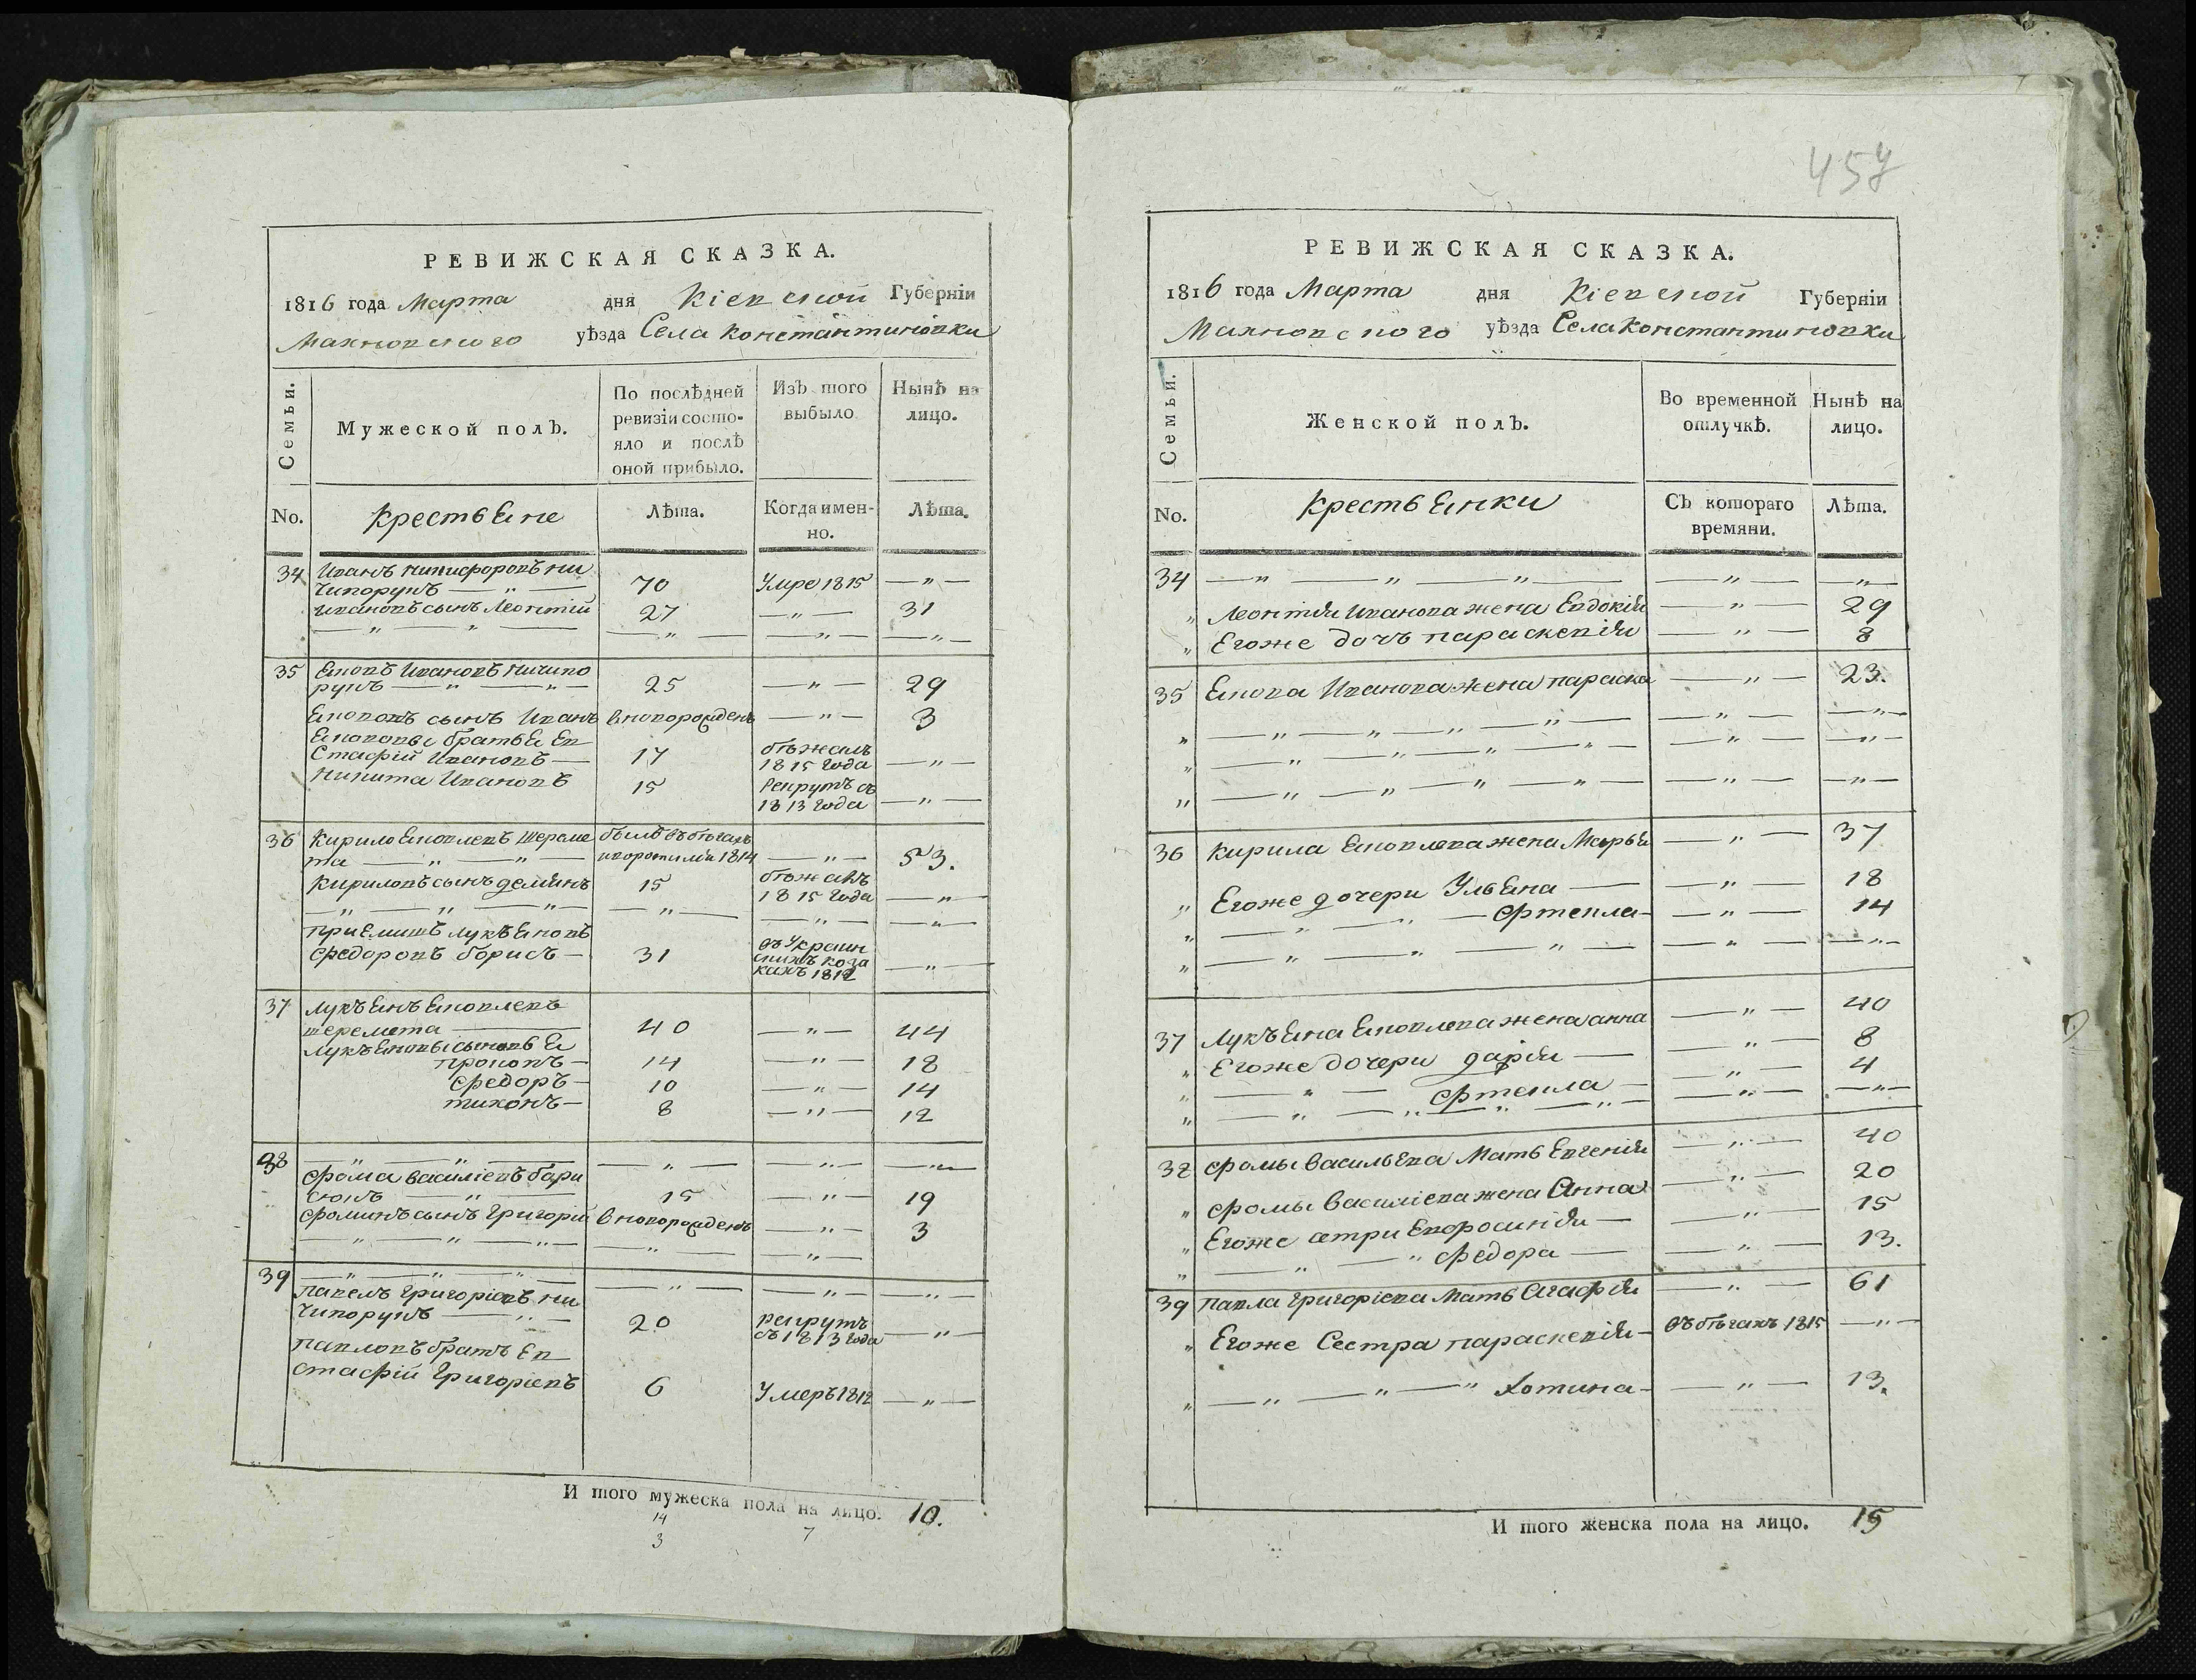 РЕВИЖСКАЯ СКАЗКА.
1816 года Марта дня Кіевской Губерніи
Махновского уѣзда Села Константиновки
Семьи.
Мужеской полъ.
По послѣдней
ревизіи состо-
яло и послѣ
оной прибыло.
Изъ того
выбыло
Нынѣ на
лицо.
No.
Крестьяне
Лѣта.
Когда имен-
но.
Лѣта.
34 Иванъ Никифоровъ Ни
чипорукъ — „ — 70 Умре 1815 — „ —
Ивановъ сынъ Леонтій 27 — „ — 31
— „ — „ — — „ — — „ — — „ —
35 Яковъ Ивановъ Ничипо
рукъ — „ — „ — 25 — „ — 29
Якововъ сынъ Иванъ вноворожденъ — „ — 3
Яковови братья Ев
стафій Ивановъ — 17 бѣжалъ
1815 года — „ —
Никита Ивановъ 15 Рекрутъ съ
1813 года — „ —
36 Кирило Яковлевъ Шереме
та — „ — „ — былъ въ бѣгахъ
1814 — „ — 53.
Кириловъ сынъ Демянъ 15 бѣжалъ
1815 года — „ —
— „ — „ — „ — — „ — — „ — — „ —
приемишъ Лукъяновъ
Федоровъ Борисъ — 31 въ Украин
скихъ коза
кахъ 1812 — „ —
37 Лукъянъ Яковлевъ
шеремета — 40 — „ — 44
Лукъяновы сыновья
прокопъ — 14 — „ — 18
Федоръ — 10 — „ — 14
тихонъ — 8 — „ — 12
38 — „ — „ — — „ — — „ — — „ —
Фома Василіевъ Бари
сюкъ — „ — 15 — „ — 19
Фоминъ сынъ Григорій вноворожденъ — „ — 3
— „ — „ — „ — — „ — — „ —
39 — „ — „ — „ — — „ — — „ — — „ —
павелъ Григоріевъ Ни
чипорукъ — „ — 20 рекрутъ
съ 1813 года — „ —
павловъ братъ Ев
стафій Григоріевъ 6 Умеръ 1812 — „ —
И того мужеска пола на лицо. 10.
14
3 7
457
РЕВИЖСКАЯ СКАЗКА.
1816 года Марта дня Кіевской Губерніи
Махновского уѣзда Села Константиновки
Семьи.
Женской полъ.
Во временной
отлучкѣ.
Нынѣ на
лицо.
No.
Крестьянки
Съ котораго
времяни.
Лѣта.
34 — „ — „ — „ — — „ — — „ —
„ Леонтія Иванова жена Евдокія — „ — 29
„ Егоже дочъ параскевія — „ — 8
35 Якова Иванова жена параска — „ — 23.
„ — „ — „ — „ — „ — — „ — — „ —
„ — „ — „ — „ — „ — — „ — — „ —
„ — „ — „ — „ — „ — — „ — — „ —
36 Кирила Яковлева жена Марья — „ — 37
„ Егоже дочери Ульяна — — „ — 18
„ — „ — „ — Фтекла — — „ — 14
„ — „ — „ — „ — — „ — — „ —
37 Лукъяна Яковлева жена анна — „ — 40
„ Егоже дочери дарія — — „ — 8
„ — „ — Фтекла — — „ — 4
„ — „ — „ — „ — „ — — „ — — „ —
38 Фомы Васильева Мать Евгенія — „ — 40
„ Фомы Василіева жена Анна — „ — 20
„ Егоже сетри Евфросинія — — „ — 15
„ — „ — „ Федора — — „ — 13.
39 павла Григоріева Мать Агафія — „ — 61
„ Егоже Сестра параскевія — въ бѣгахъ 1815 — „ —
„ — „ — „ — „ Хотина — — „ — 13.
И того женска пола на лицо. 15